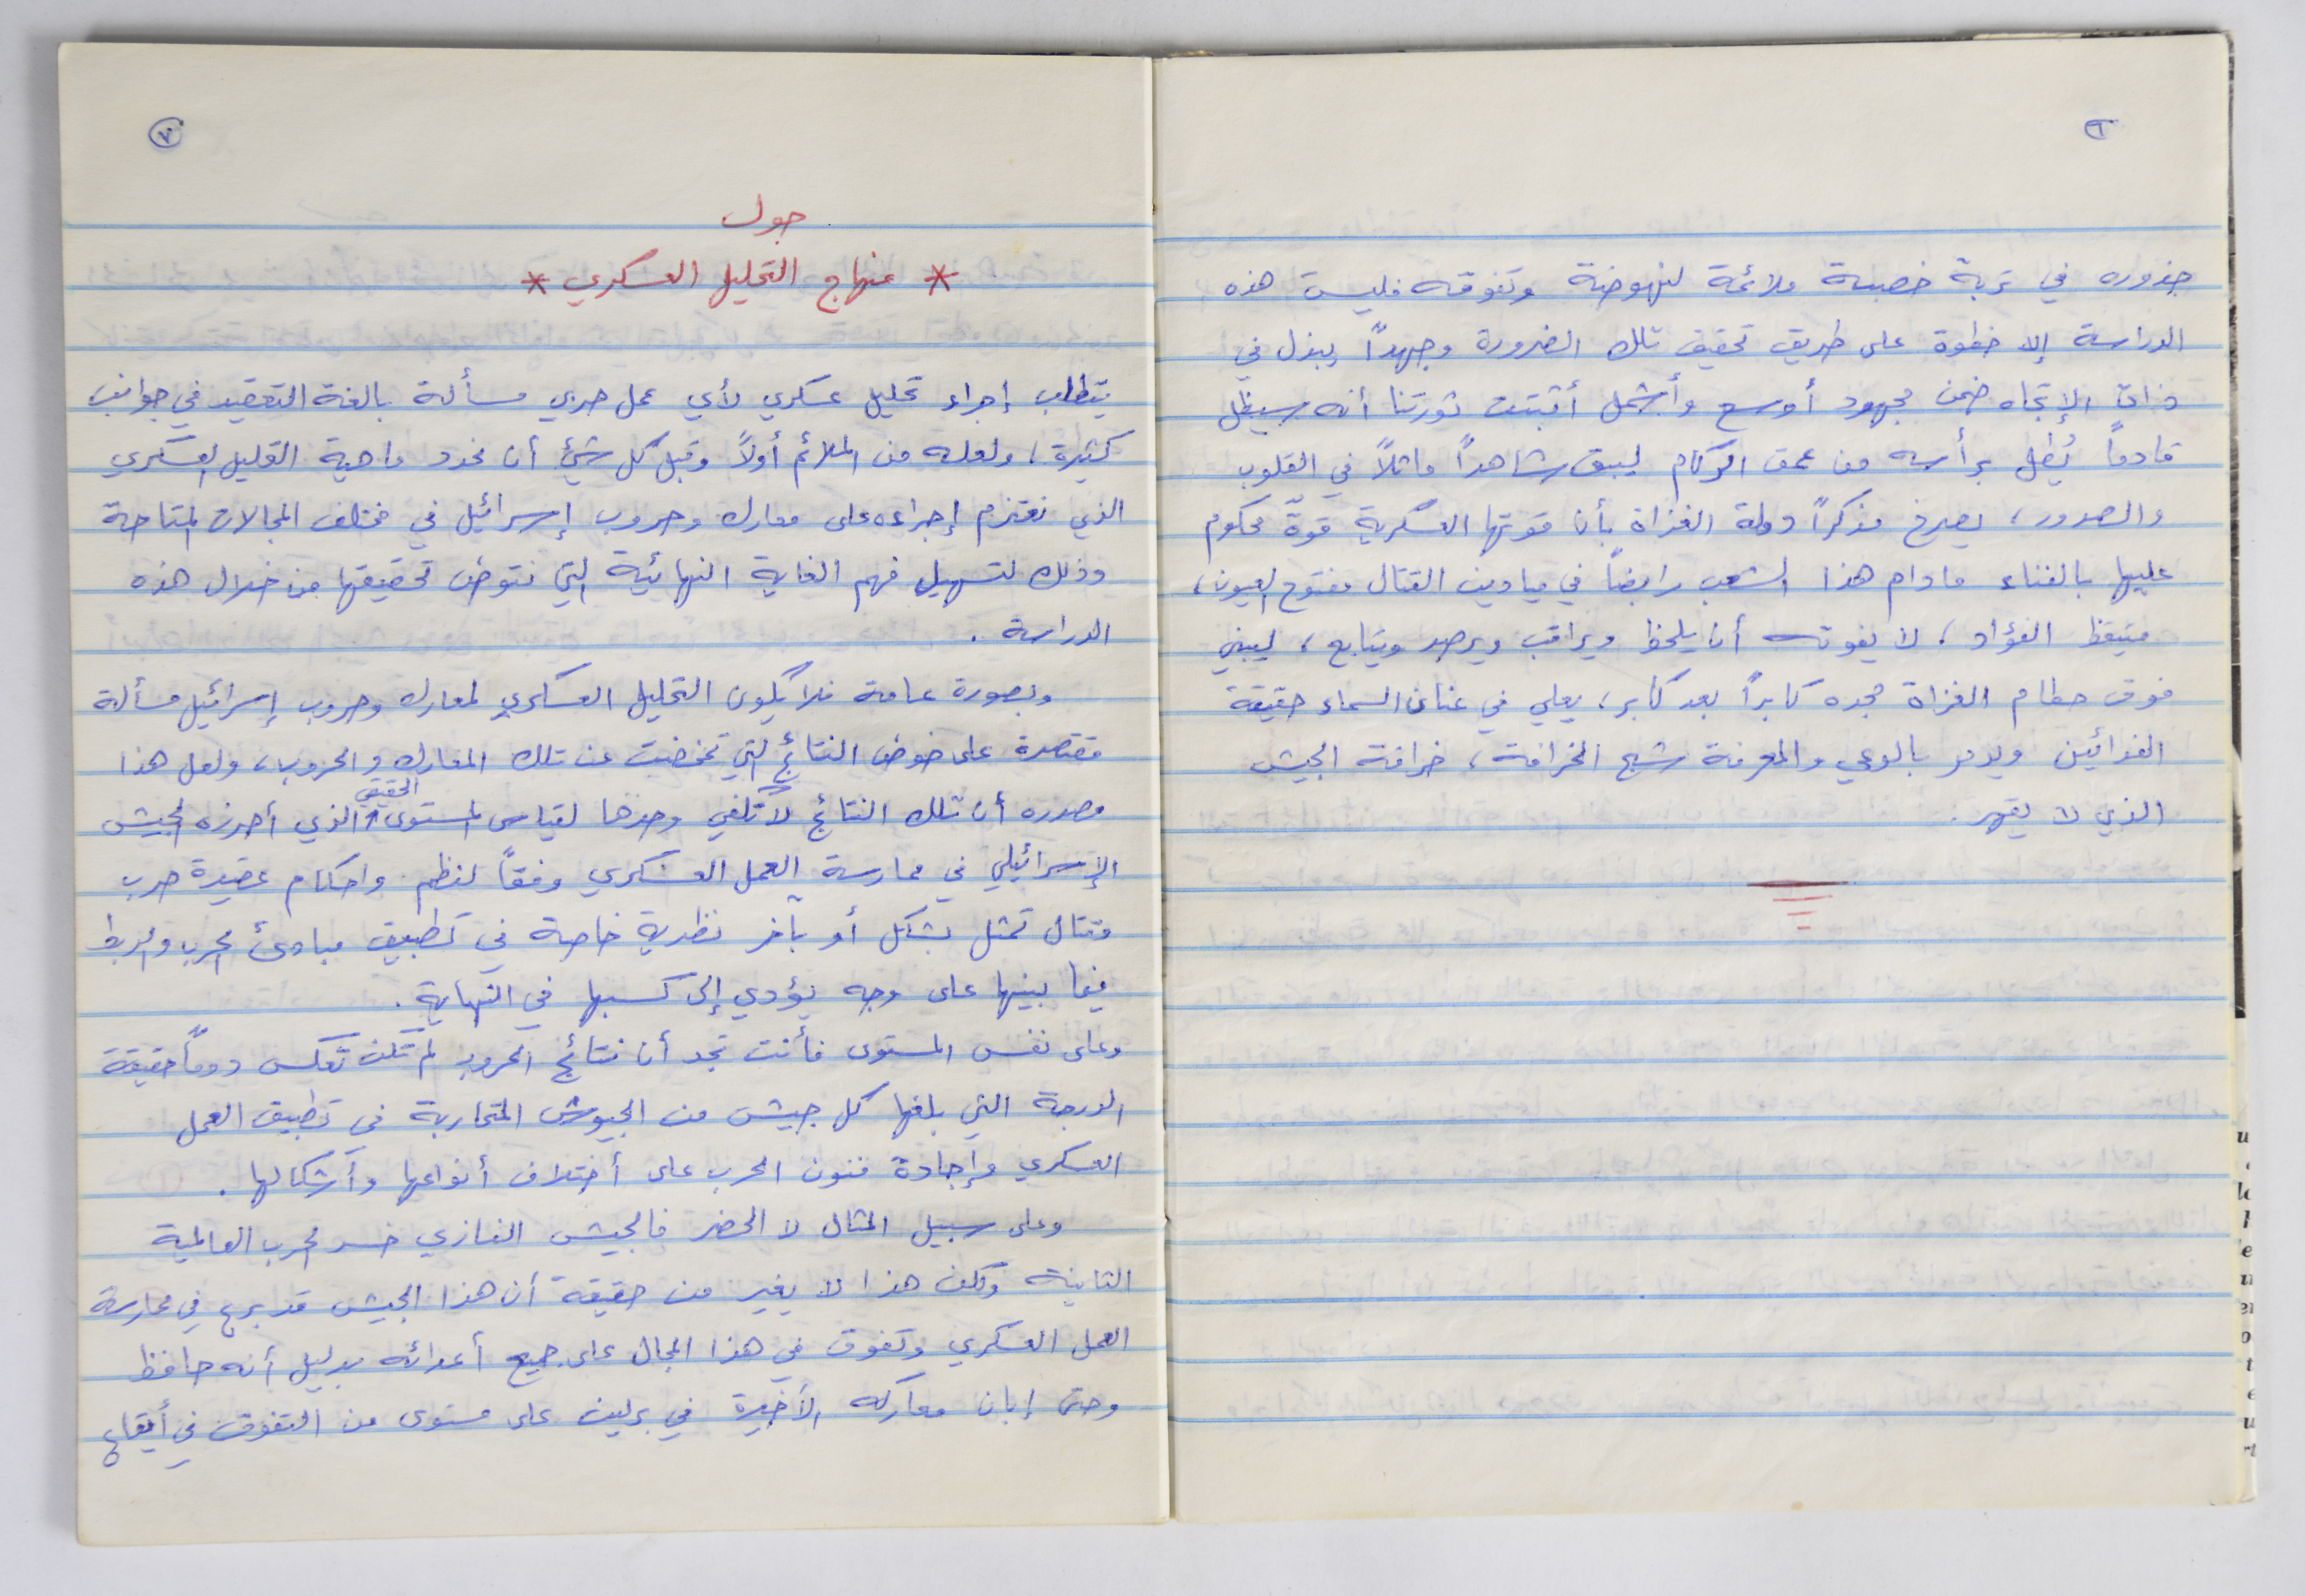 ٦
جذوره في تربة خصبة ملائمة لنهوضة وتفوقه فليست هذه
الدراسة إلا خطوة على طريق تحقيق تلك الضرورة وجهداً يبذل في
ذات الإتجاه ضمن مجهود أوسع وأشمل أثبتت ثورتنا أنه سيظل
قادماً يُطل برأسه من عمق الركام ليبق شاهداً ماثلاً في القلوب
والصدور، يصرخ مذكراً دولة الغزاة بأن قوتها العسكرية قوة محكوم
عليها بالفناء مادام هذا الشعب رابضاً في ميادين القتال مفتوح العيون،
متيقظ الفؤاد، لا يفوته أن يلحظ ويراقب ويرصد ويتابع، ليبني
فوق حطام الغزاة مجده كابراً بعد كابر، يعلي في عنان السماء حقيقة
الفدائيين ويدمر بالوعي والمعرفة شبح الخرافة، خرافة الجيش
الذي لا يقهر.
٧
حول
* منهاج التحليل العسكري *
يتطلب إجراء تحليل عسكري لأي عمل حربي مسألة بالغة التعقيد في جوانب
كثيرة، ولعله من الملائم أولاً وقبل كل شئ أن نحدد ماهية التحليل العسكري
الذي نعتزم إجراءه على معارك وحروب إسرائيل في مختلف المجالات المتاحة
وذلك لتسهيل فهم الغاية النهائية التي نتوخى تحقيقها من خلال هذه
الدراسة.
وبصورة عامة فلا يكون التحليل العسكري لمعارك وحروب إسرائيل مسألة
مقتصرة على خوض النتائج التي تمخضت عن تلك المعارك والحروب، ولعل هذا
مصدره أن تلك النتائج لا تكفي وحدها لقياس المستوى الحقيقي الذي أحرزه الجيش
الإسرائيلي في ممارسة العمل العسكري وفقاً لنظم واحكام عقيدة حرب
وقتال تمثل بشكل أو بآخر نظرية خاصة في تطبيق مبادئ الحرب والربط
فيما بينها على وجه يؤدي إلى كسبها في النهاية.
وعلى نفس المستوى فأنت تجد أن نتائج الحروب لم تكن تعكس دوماً حقيقة
الدرجة التي بلغها كل جيش من الجيوش المتحاربة في تطبيق العمل
العسكري وإجادة فنون الحرب على أختلاف أنواعها وأشكالها.
وعلى سبيل المثال لا الحضر فالجيش النازي خسر الحرب العالمية
الثانية ولكن هذا لا يغير من حقيقة أن هذا الجيش قد برع في ممارسة
العمل العسكري وتفوق في هذا المجال على جميع أعدائه بدليل أنه حافظ
وحتى إبان معاركه الأخيرة في برلين على مستوى من التفوق في أيقاع